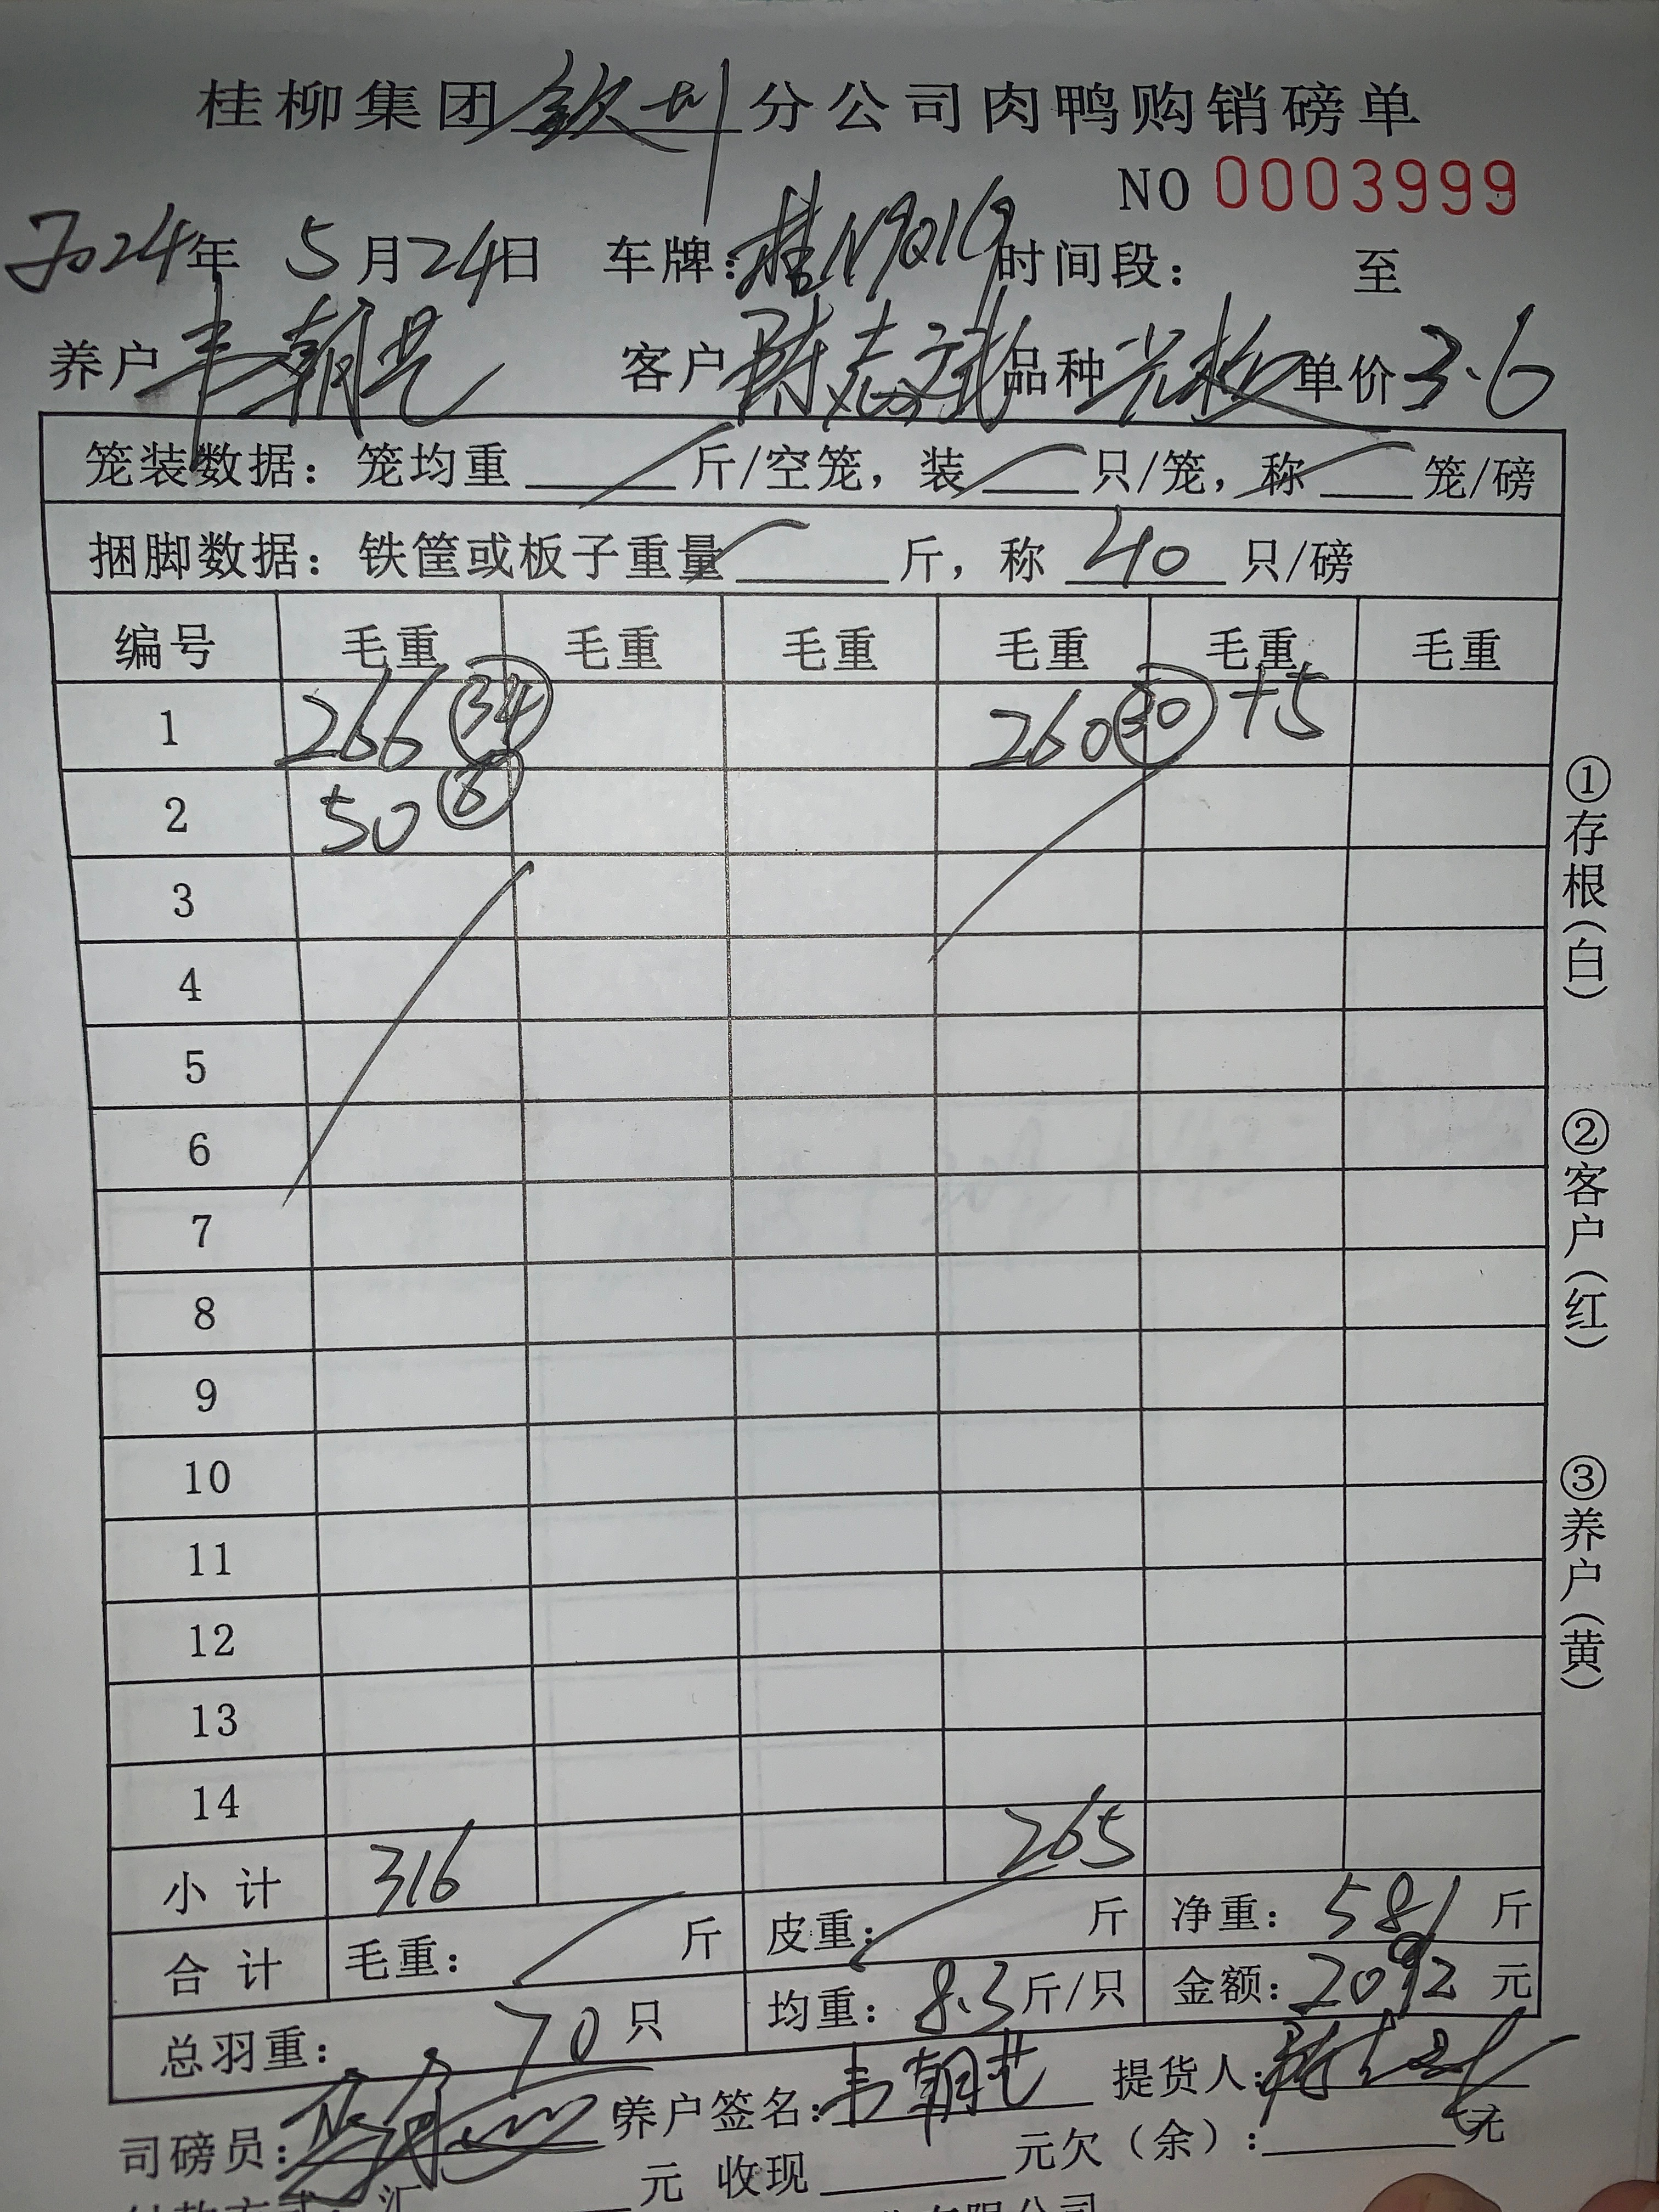 桂柳集团钦州分公司肉鸭购销磅单
NO 0003999
2024年 5月24日 车牌:桂N9Q1G 时间段: 至
养户 韦朝芑 客户 陈志斌 品种 单价3.6
笼装数据: 笼均重 斤/空笼, 装 只/笼, 称 笼/磅
捆脚数据: 铁筐或板子重量 斤, 称 40 只/磅
编号 毛重 毛重 毛重 毛重 毛重 毛重
1 266 34 260 30 +5
2 50 6
3
4
5
6
7
8
9
10
11
12
13
14
小 计 316 265
合 计 毛重: 斤 皮重: 斤 净重: 581 斤
总羽重: 70 只 均重: 8.3 斤/只 金额: 2092 元
司磅员: 养户签名: 韦朝芑 提货人:
元 收现 元欠(余): 元
①存根(白)
②客户(红)
③养户(黄)